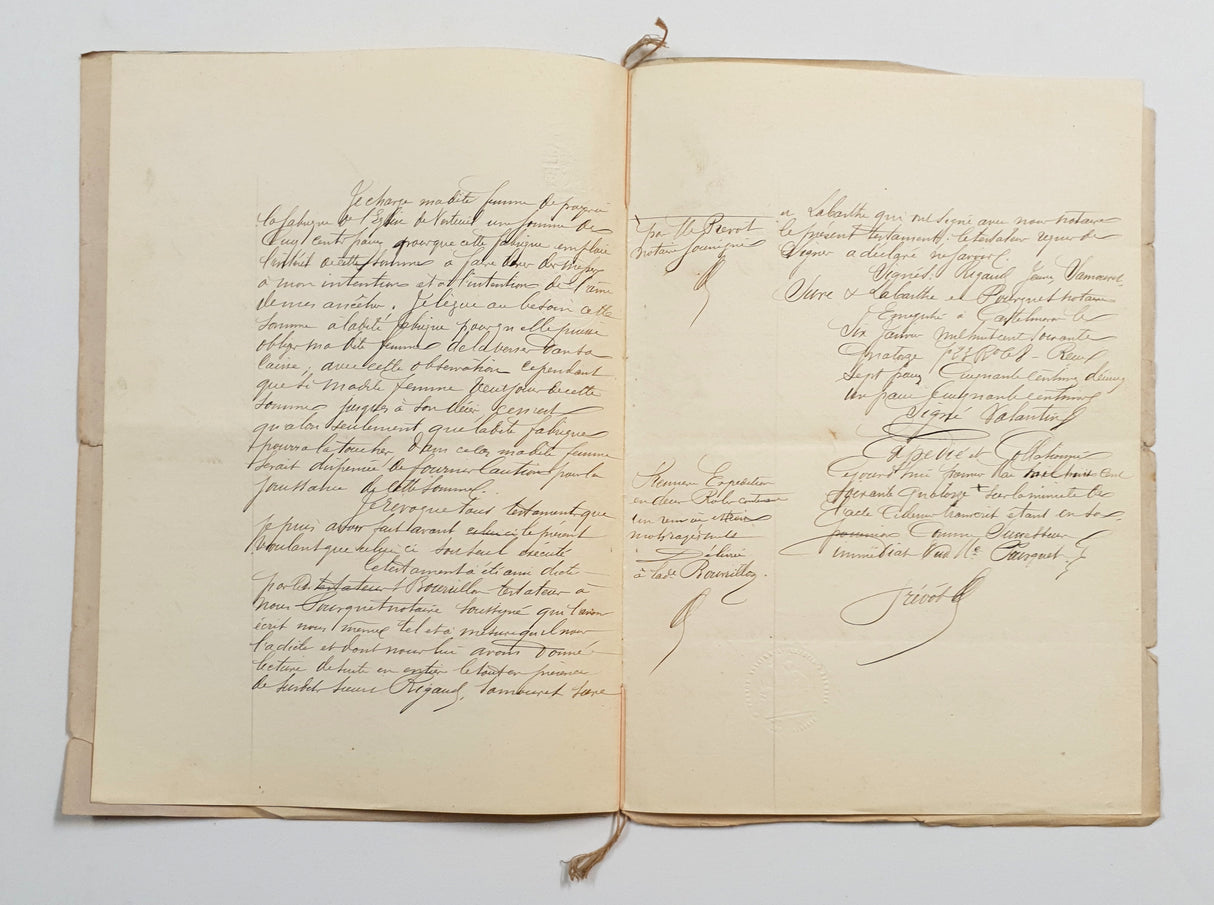 Je charge madite femme de payer à
la fabrique de l'Eglise de Verteuil une somme de
Cinq cents francs pour que cette fabrique emploie
l'intérêt de cette somme à faire dire des messes
à mon intention et à l'intention de l'âme
de mes ancêtres. Je lègue au besoin cette
somme à ladite fabrique pour qu'elle puisse
obliger madite femme de la verser dans sa
caisse, avec cette observation cependant
que si madite femme veut jouir de cette
somme jusques à son décès ce n'est
qu'alors seulement que ladite fabrique
pourra la toucher. Dans ce cas madite femme
serait dispensée de fournir caution pour la
jouissance de cette somme.
Je révoque tous testaments que
je puis avoir fait avant celui ci le présent
voulant que celui ci soit seul exécuté
Ce testament a été ainsi dicté
par testateur Bournillon testateur à
nous Pourquet notaire soussigné qui l'avons
écrit nous même tel et à mesure qu'il nous
l'a dicté et dont nous lui avons donné
lecture de suite en entier le tout en présence
de susdits sieurs Rigaud, Vamouret Sure
par Me Prévot
notaire soussigné
et Labarthe qui ont signé avec nous notaire
le présent testament. Le testateur requis de
signer a déclaré ne savoir.
Signés Rigaud Jeune Vamouret
Sure & Labarthe et Pourquet notaire
Enregistré à Castelmoron le
six janvier mil huit cent soixante
quatorze fo R° C 8 - Reçu
sept francs cinquante centimes décimes
un franc cinquante centimes
Signé Valantin
Expédié et Collationné
ce jourd'hui premier Mai mil huit cent
soixante quatorze + sur la minute de
l'acte ci dessus transcrit étant en sa
possession comme successeur
immédiat dud Me Pourquet
Prévôt
Expédition
en deux Rôles contenant
un renvoi et
mots rayés nuls
Délivré
à lade Bournillon.